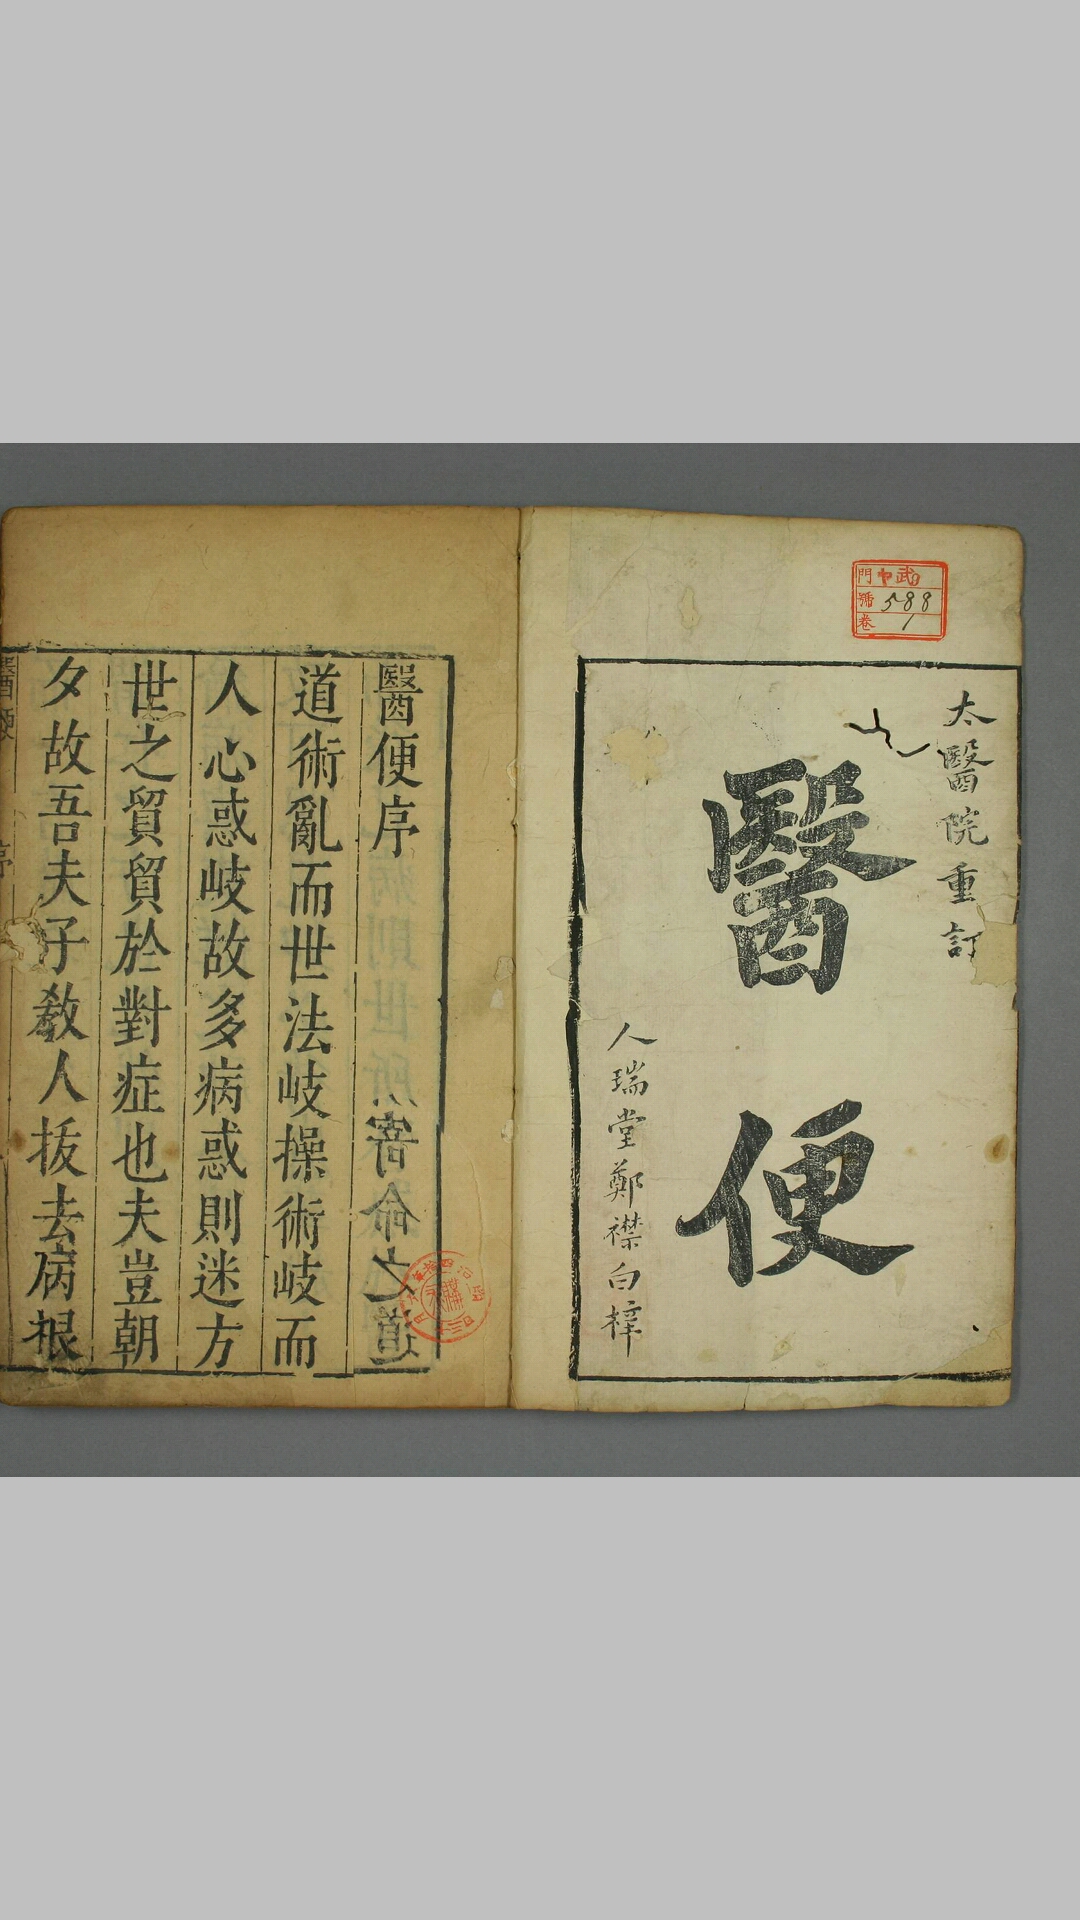 門 武
號 588
卷 1
太醫院重訂
醫便
人瑞堂鄭襟白梓
醫便序
道術亂而世法岐操術岐而
人心惑岐故多病惑則迷方
世之貿貿於對症也夫豈朝
夕故吾夫子教人拔去病根
醫便
序